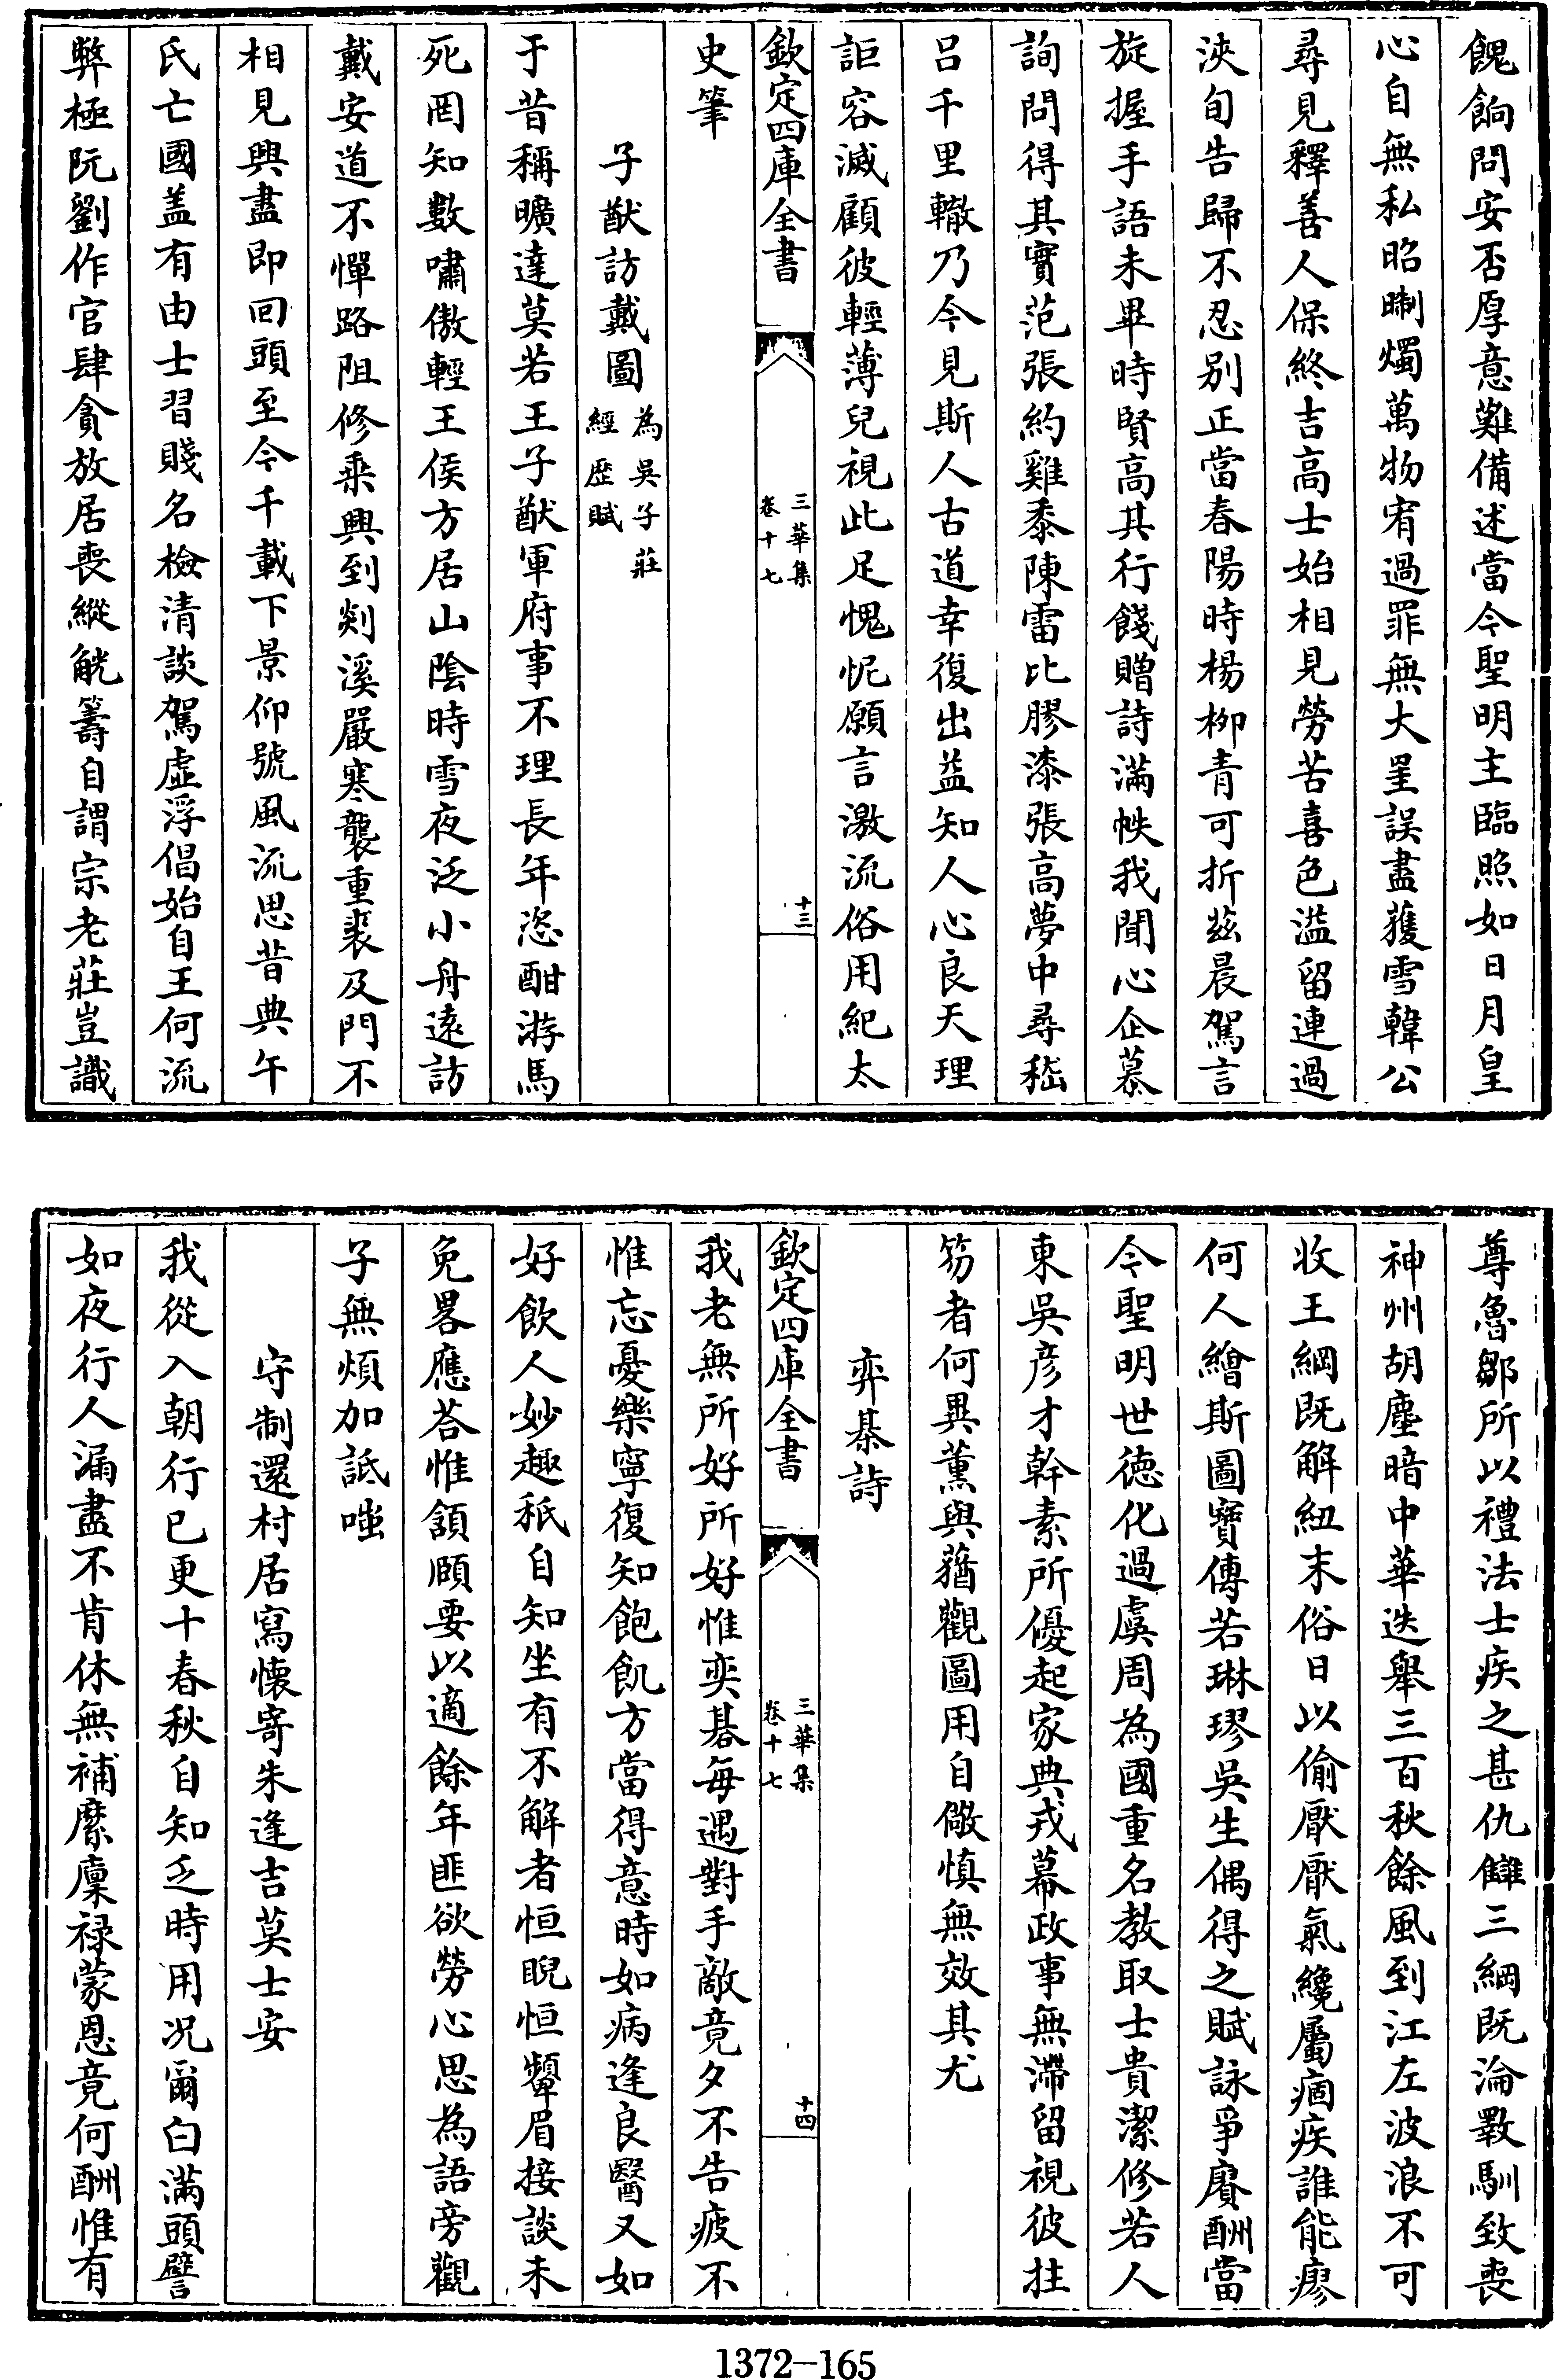 餽餉問安否厚意難備述當今聖明主臨照如日月皇
心自無私昭晰燭萬物宥過罪無大罣誤盡獲雪韓公
尋見釋善人保終吉高士始相見勞苦喜色溢留連過
浹旬告歸不忍别正當春陽時楊柳青可折兹晨駕言
旋握手語未畢時賢高其行餞贈詩滿帙我聞心企慕
詢問得其實范張約雞黍陳雷比膠漆張高夢中尋嵇
吕千里轍乃今見斯人古道幸復出益知人心良天理
詎容滅顧彼輕薄兒視此足愧怩願言激流俗用紀太
欽定四庫全書
三華集
卷十七
十三
史筆
子猷訪戴圖
為吳子莊
經歴賦
于昔稱曠達莫若王子猷軍府事不理長年恣酣游馬
死罔知數嘯傲輕王侯方居山陰時雪夜泛小舟遠訪
戴安道不憚路阻修乘興到剡溪嚴寒襲重裘及門不
相見興盡即回頭至今千載下景仰號風流思昔典午
氏亡國盖有由士習賤名檢清談駕虚浮倡始自王何流
弊極阮劉作官肆貪放居喪縱觥籌自謂宗老莊豈識
尊魯鄒所以禮法士疾之甚仇讎三綱既淪斁馴致喪
神州胡塵暗中華迭舉三百秋餘風到江左波浪不可
收王綱既解紐末俗日以偷厭厭氣纔屬痼疾誰能瘳
何人繪斯圖寳傳若琳璆吳生偶得之賦詠爭賡酬當
今聖明世德化過虞周為國重名教取士貴潔修若人
東吳彦才幹素所優起家典戎幕政事無滯留視彼拄
笏者何異薰與蕕觀圖用自儆慎無效其尤
弈棊詩
欽定四庫全書
三華集
卷十七
十四
我老無所好所好惟奕碁每遇對手敵竟夕不告疲不
惟忘憂樂寧復知飽飢方當得意時如病逢良醫又如
好飲人妙趣秖自知坐有不解者恒睨恒顰眉接談未
免畧應荅惟頷頤要以適餘年匪欲勞心思為語旁觀
子無煩加詆嗤
守制還村居寫懐寄朱逢吉莫士安
我從入朝行已更十春秋自知乏時用况爾白滿頭譬
如夜行人漏盡不肯休無補縻廩禄蒙恩竟何酬惟有
1372—165